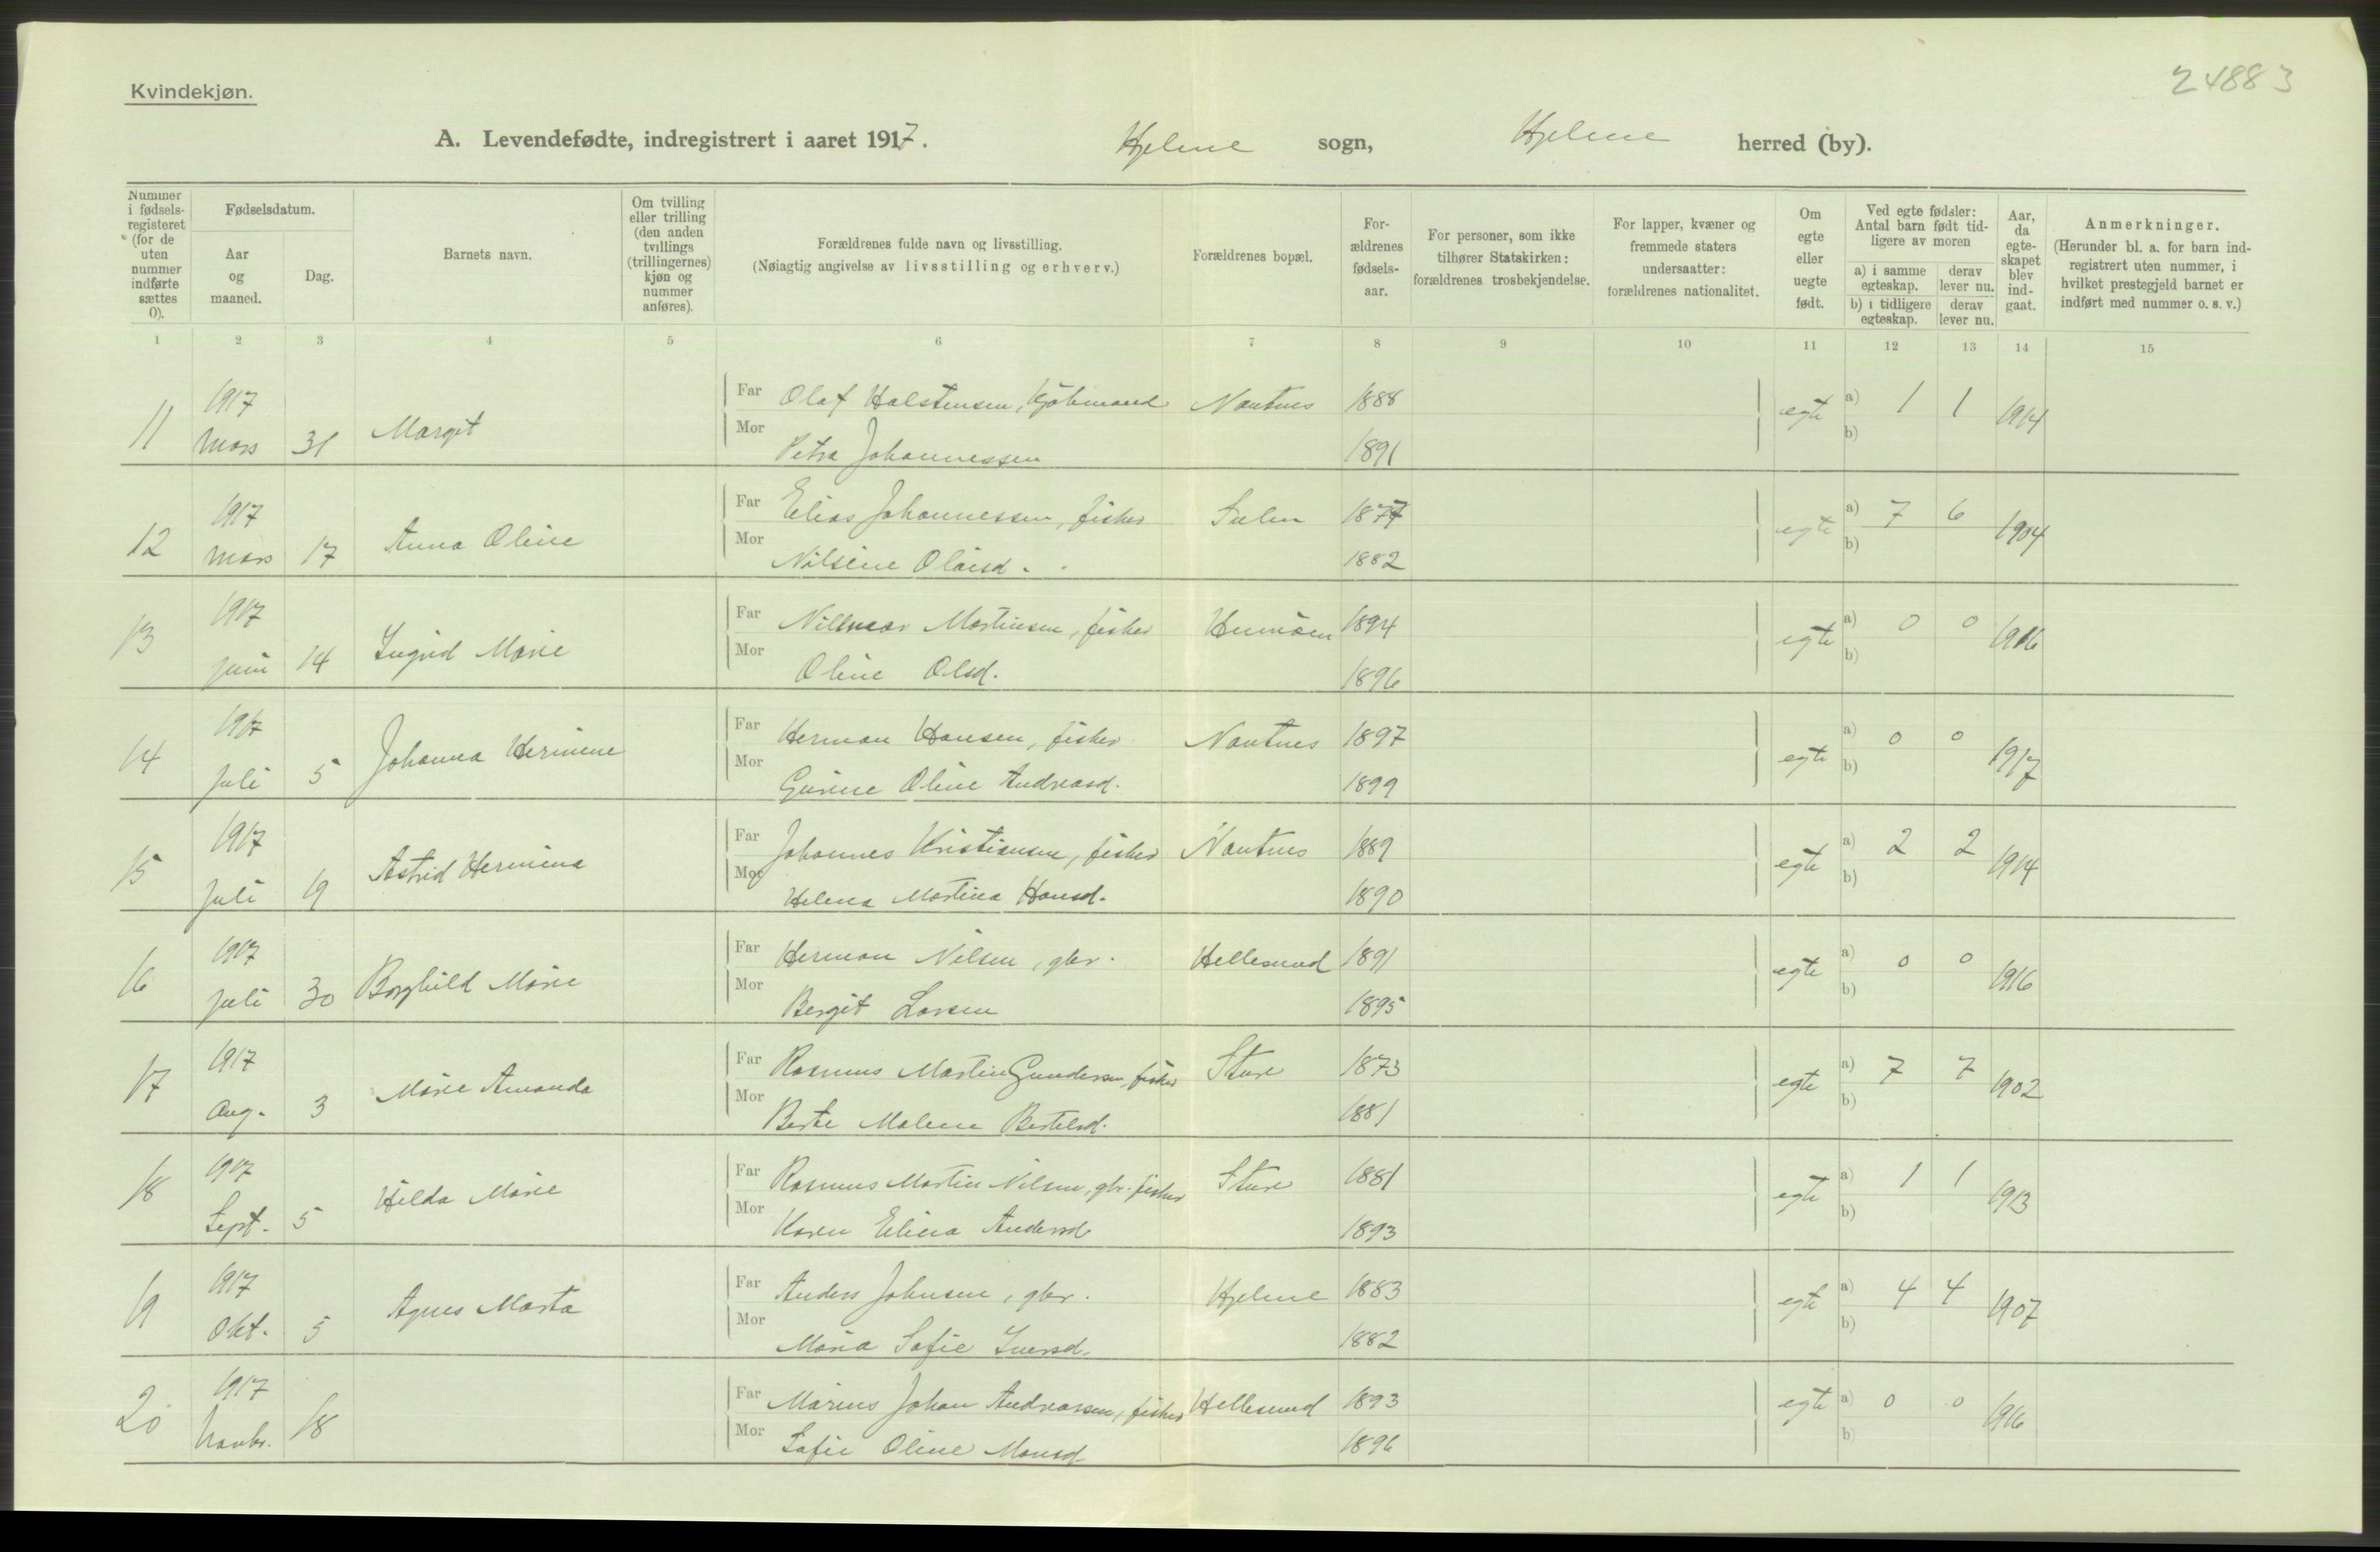 Kvindekjøn.
24883
A. Levendefødte, indregistrert i aaret 1917. Hjelme sogn, Hjelme herred (by).
Nummer i fødsels-registeret (for de uten nummer indførte sættes 0).
Fødselsdatum.
Aar og maaned.
Dag.
Barnets navn.
Om tvilling eller trilling (den anden tvillings (trillingernes) kjøn og nummer anføres).
Forældrenes fulde navn og livsstilling.
(Nøiagtig angivelse av livsstilling og erhverv.)
Forældrenes bopæl.
For-ældrenes fødsels-aar.
For personer, som ikke tilhører Statskirken: forældrenes trosbekjendelse.
For lapper, kvæner og fremmede staters undersaatter: forældrenes nationalitet.
Om egte eller uegte født.
Ved egte fødsler: Antal barn født tid-ligere av moren
a) i samme egteskap.
derav lever nu.
b) i tidligere egteskap.
derav lever nu.
Aar, da egte-skapet blev ind-gaat.
Anmerkninger.
(Herunder bl. a. for barn ind-registrert uten nummer, i hvilket prestegjeld barnet er indført med nummer o. s. v.)
1 2 3 4 5 6 7 8 9 10 11 12 13 14 15
11 1917 Mars 31 Margit Far Olaf Halstensen, Kjøbmand Nautnes 1888 egte a) 1 1 1914
Mor Petra Johannessen 1891 b)
12 1917 Mars 17 Anna Oline Far Elias Johannessen, fisker 1877 egte a) 7 6 1904
Mor Nilsine Olaisd. 1882 b)
13 1917 Juni 14 Ingrid Marie Far Martinsen, fisker 1894 egte a) 0 0 1916
Mor Oline Olsd. 1896 b)
14 1917 Juli 5 Johanna Hermine Far Herman Hansen, fisker Nautnes 1897 egte a) 0 0 1917
Mor Gurine Oline Andreasd. 1899 b)
15 1917 Juli 19 Astrid Hermina Far Johannes Kristiansen, fisker Nautnes 1889 egte a) 2 2 1914
Mor Helena Martina Hansd. 1890 b)
16 1917 Juli 30 Borghild Marie Far Herman Nilsen, gbr. Hellesund 1891 egte a) 0 0 1916
Mor Bergit Larsen 1895 b)
17 1917 Aug. 3 Marie Amanda Far Rasmus Martin Gundersen, fisker Sture 1873 egte a) 7 7 1902
Mor Berte Malene Bertelsd. 1881 b)
18 1917 Sept. 5 Hilda Marie Far Rasmus Martin Nilsen, gbr. fisker Sture 1881 egte a) 1 1 1913
Mor Karen Elina Andersd. 1893 b)
19 1917 Okt. 5 Agnes Marta Far Anders Johnsen, gbr. Hjelme 1883 egte a) 4 4 1907
Mor Maria Sofie Iversd. 1882 b)
20 1917 Novbr. 18 Far Marius Johan Andreassen, fisker Hellesund 1893 egte a) 0 0 1916
Mor Sofie Oline Monsd. 1896 b)